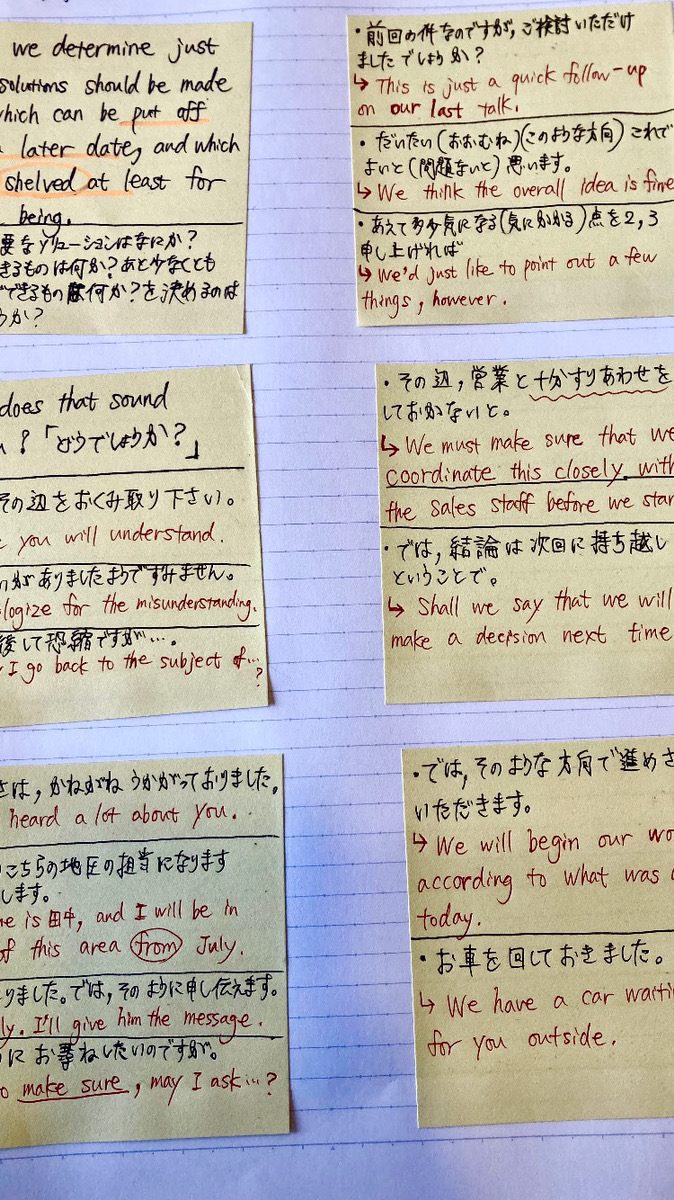 we determine just
solutions should be made
which can be put off
later date, and which
shelved at least for
being.
要なソリューションはなにか?
きるものは何か?あと少なくとも
できるものは何か?を決めるのは
うか?
・前回の件なのですが,ご検討いただけ
ましたでしょうか?
↳ This is just a quick follow-up
on our last talk.
・だいたい(おおむね)(このような方向)これで
よいと(問題ないと)思います。
↳ We think the overall idea is fine
・あえて多少気になる(気にかかる)点を2,3
申し上げれば
↳ We'd just like to point out a few
things, however.
does that sound
?「どうでしょうか?」
その辺をおくみ取り下さい。
you will understand.
がありましたようですみません。
logize for the misunderstanding.
後して恐縮ですが…。
I go back to the subject of…
?
・その辺,営業と十分すりあわせを
しておかないと。
↳ We must make sure that we
coordinate this closely with
the sales staff before we star
・では,結論は次回に持ち越し
ということで。
↳ Shall we say that we will
make a decision next time
は,かねがねうかがっておりました。
heard a lot about you.
こちらの地区の担当になります
します。
me is 田中, and I will be in
of this area from July.
りました。では,そのように申し伝えます。
ly. I'll give him the message.
にお尋ねしたいのですが。
to make sure, may I ask…?
・では,そのような方向で進めさ
いただきます。
↳ We will begin our wo
according to what was
today.
・お車を回しておきました。
↳ We have a car waiti
for you outside.